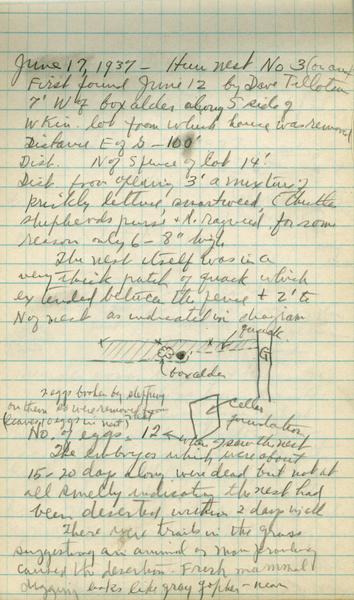 June 17, 1937 - Hun nest No 3 (or an
First found June 12 by Dave Tillotson
7' W of box alder along S side of
W Kin. lot from which house was removed
Distance E of G - 100'
Dist. N of S fence of lot 14'
Dist from opening 3' a mixture of
prickly lettuce smartweed thistle
shepherds purse + R. ragweed for some
reason only 6-8" high
The nest itself was in a
very thick patch of quack which
extended between the fence + 2' to
N of nest as indicated in diagram
quack
G
box alder
2 eggs broken by stepping
on them so were removed from
(leaves 10 eggs in nest)
cellar
foundation
No. of eggs, 12 ← when I saw the nest
The embryos which were about
15-20 days along were dead but not at
all smelly indicating the nest had
been deserted within 2 days
There were trails in the grass
suggesting an animal or man prowling
caused the desertion. Fresh mammal
digging looks like gray gopher - near